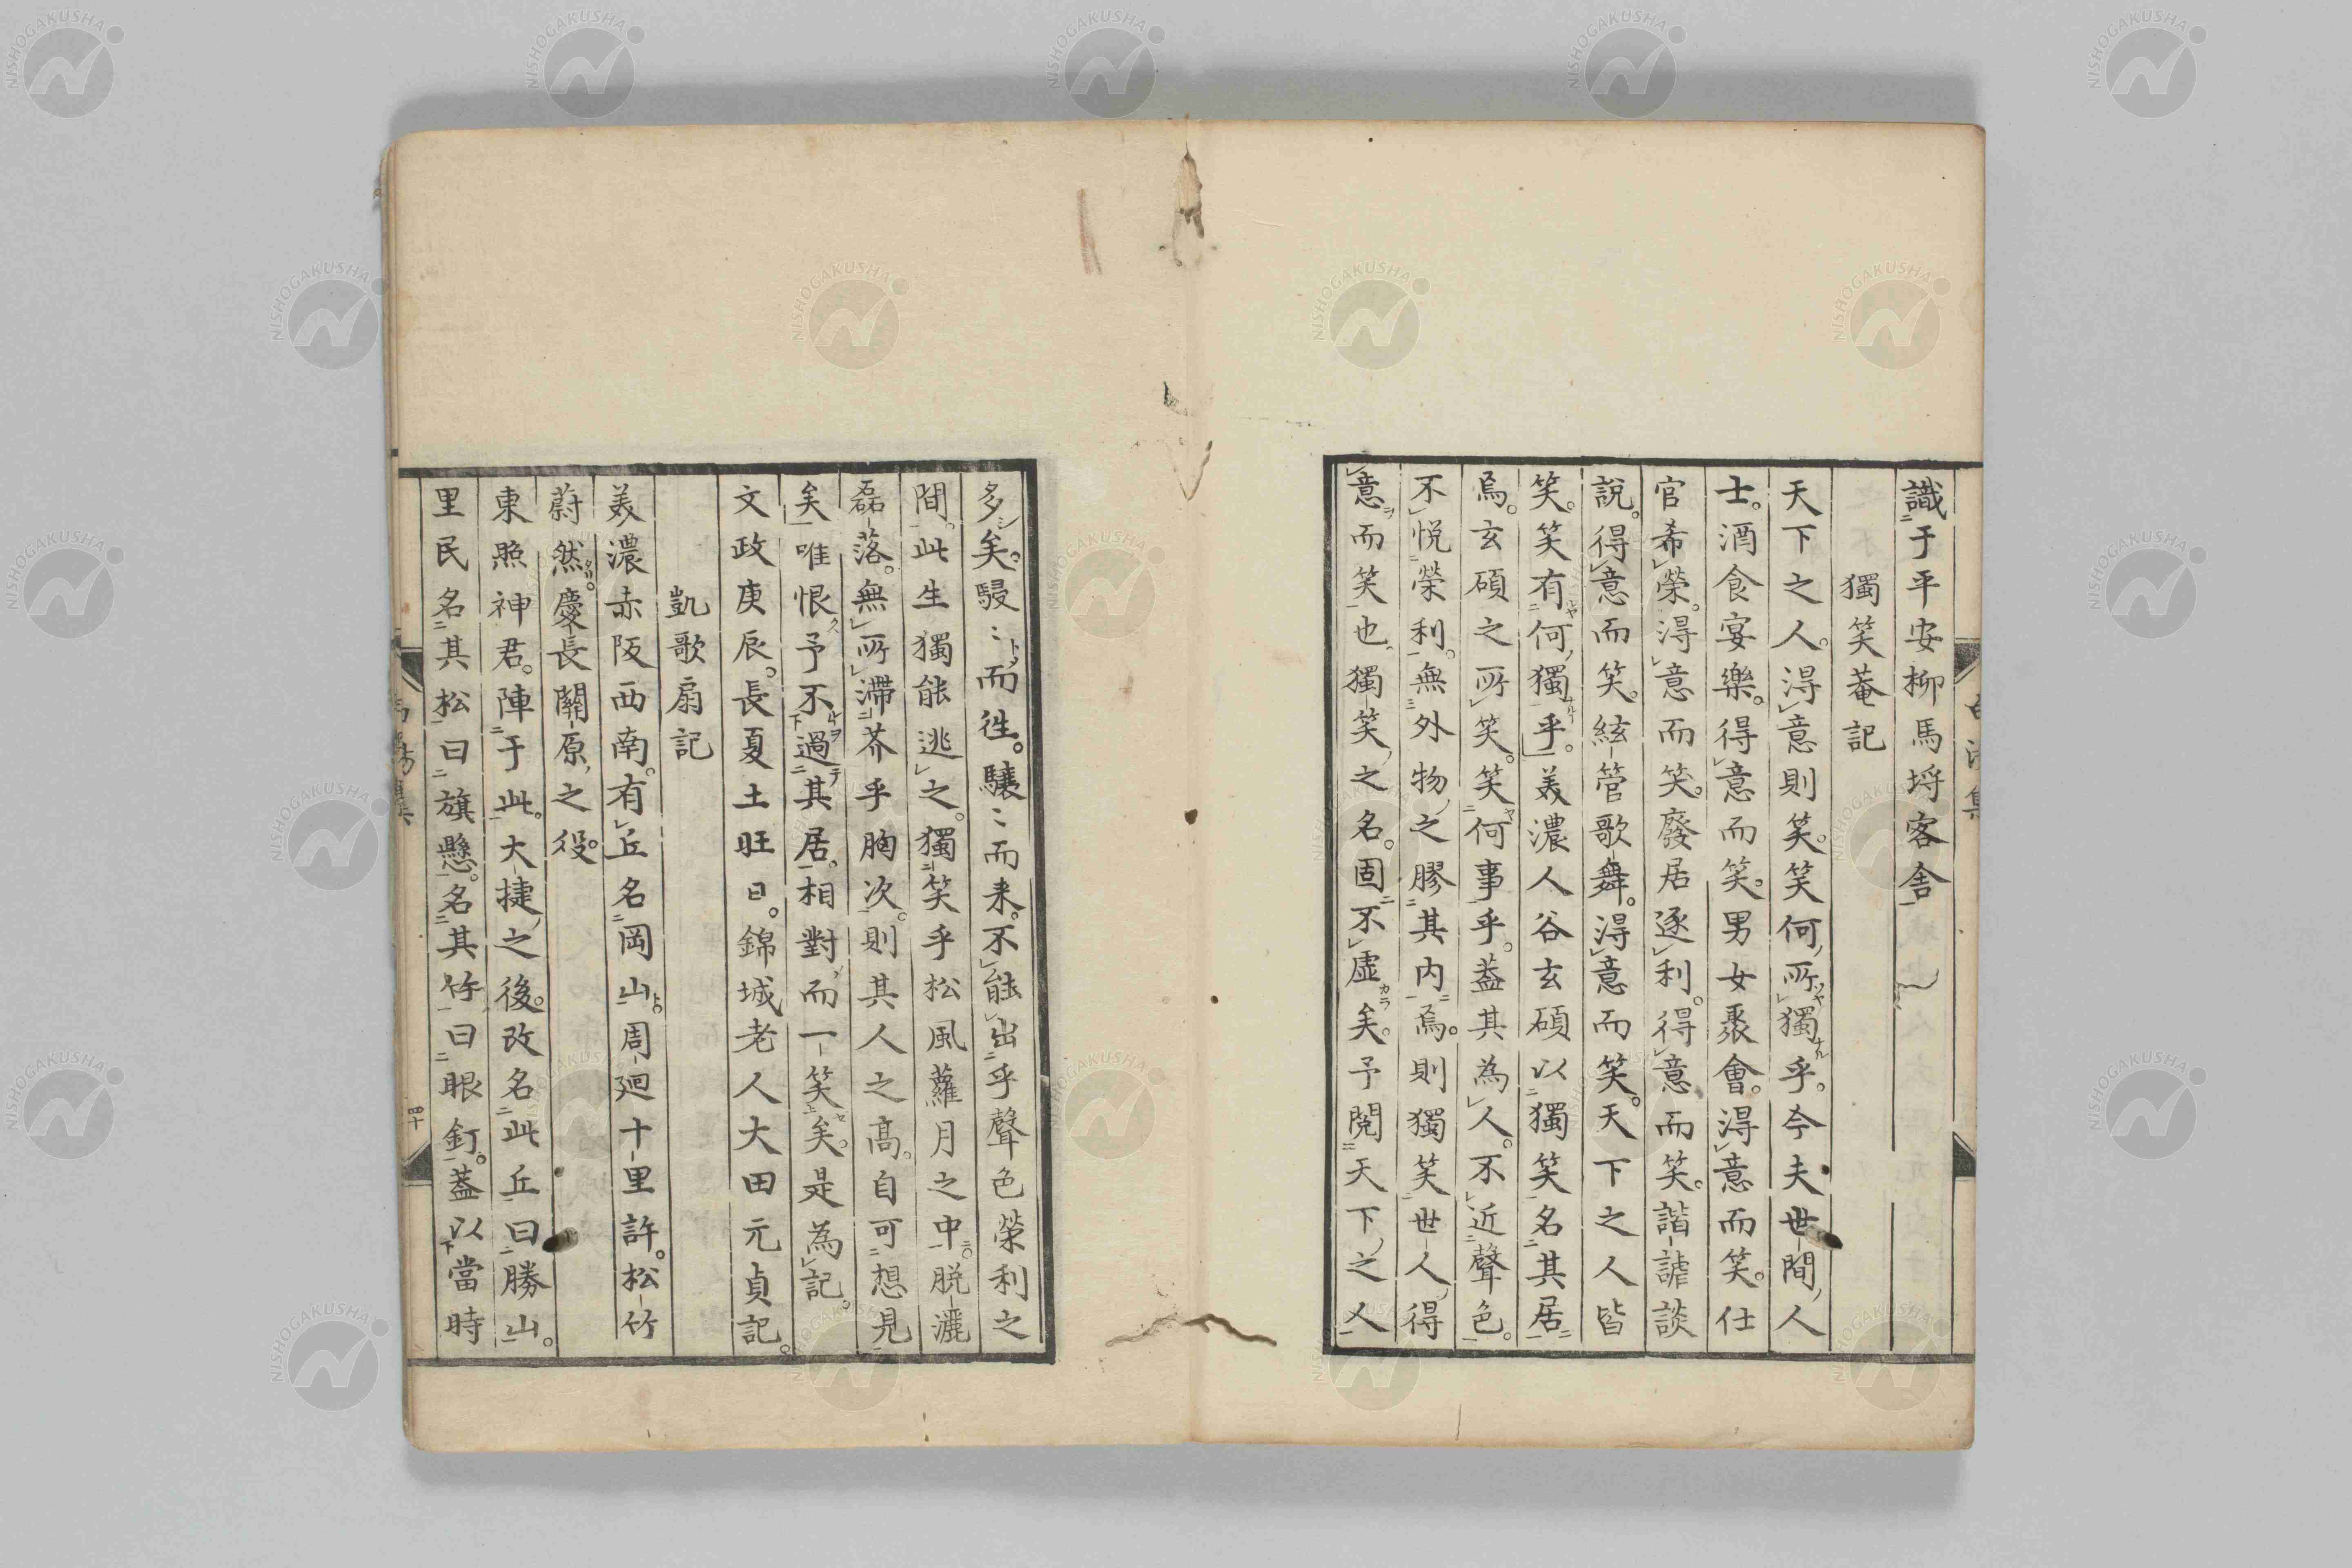 識于平安柳馬埒客舎
獨笑菴記
天下之人。得意則笑。笑何所獨乎。今夫世間人
士。酒食宴樂。得意而笑。男女聚會。得意而笑。仕
官希榮。得意而笑。廢居逐利。得意而笑。諧謔談
説。得意而笑。絃管歌舞。得意而笑。天下之人皆
笑。笑有何獨乎。美濃人谷玄碩以獨笑名其居
焉。玄碩之所笑。笑何事乎。葢其為人。不近聲色。
不悦榮利。無外物之膠其内焉。則獨笑世人得
意而笑也、獨笑之名。固不虚矣。予閲天下之人
多矣。駸〻而徃。驤〻而来。不能出乎聲色榮利之
間。此生獨能逃之。獨笑乎松風蘿月之中。脱灑
磊落。無所滞芥乎胸次。則其人之高。自可想見
矣唯恨予不過其居。相對而一笑矣。是為記。
文政庚辰。長夏土旺日。錦城老人大田元貞記。
凱歌扇記
美濃赤阪西南。有丘名岡山。周廻十里許。松竹
蔚然。慶長關原之役。
東照神君。陣于此。大捷之後。改名此丘曰勝山。
里民名其松曰旗懸。名其竹曰眼釘。葢以當時
四十
NISHOGAKUSHA